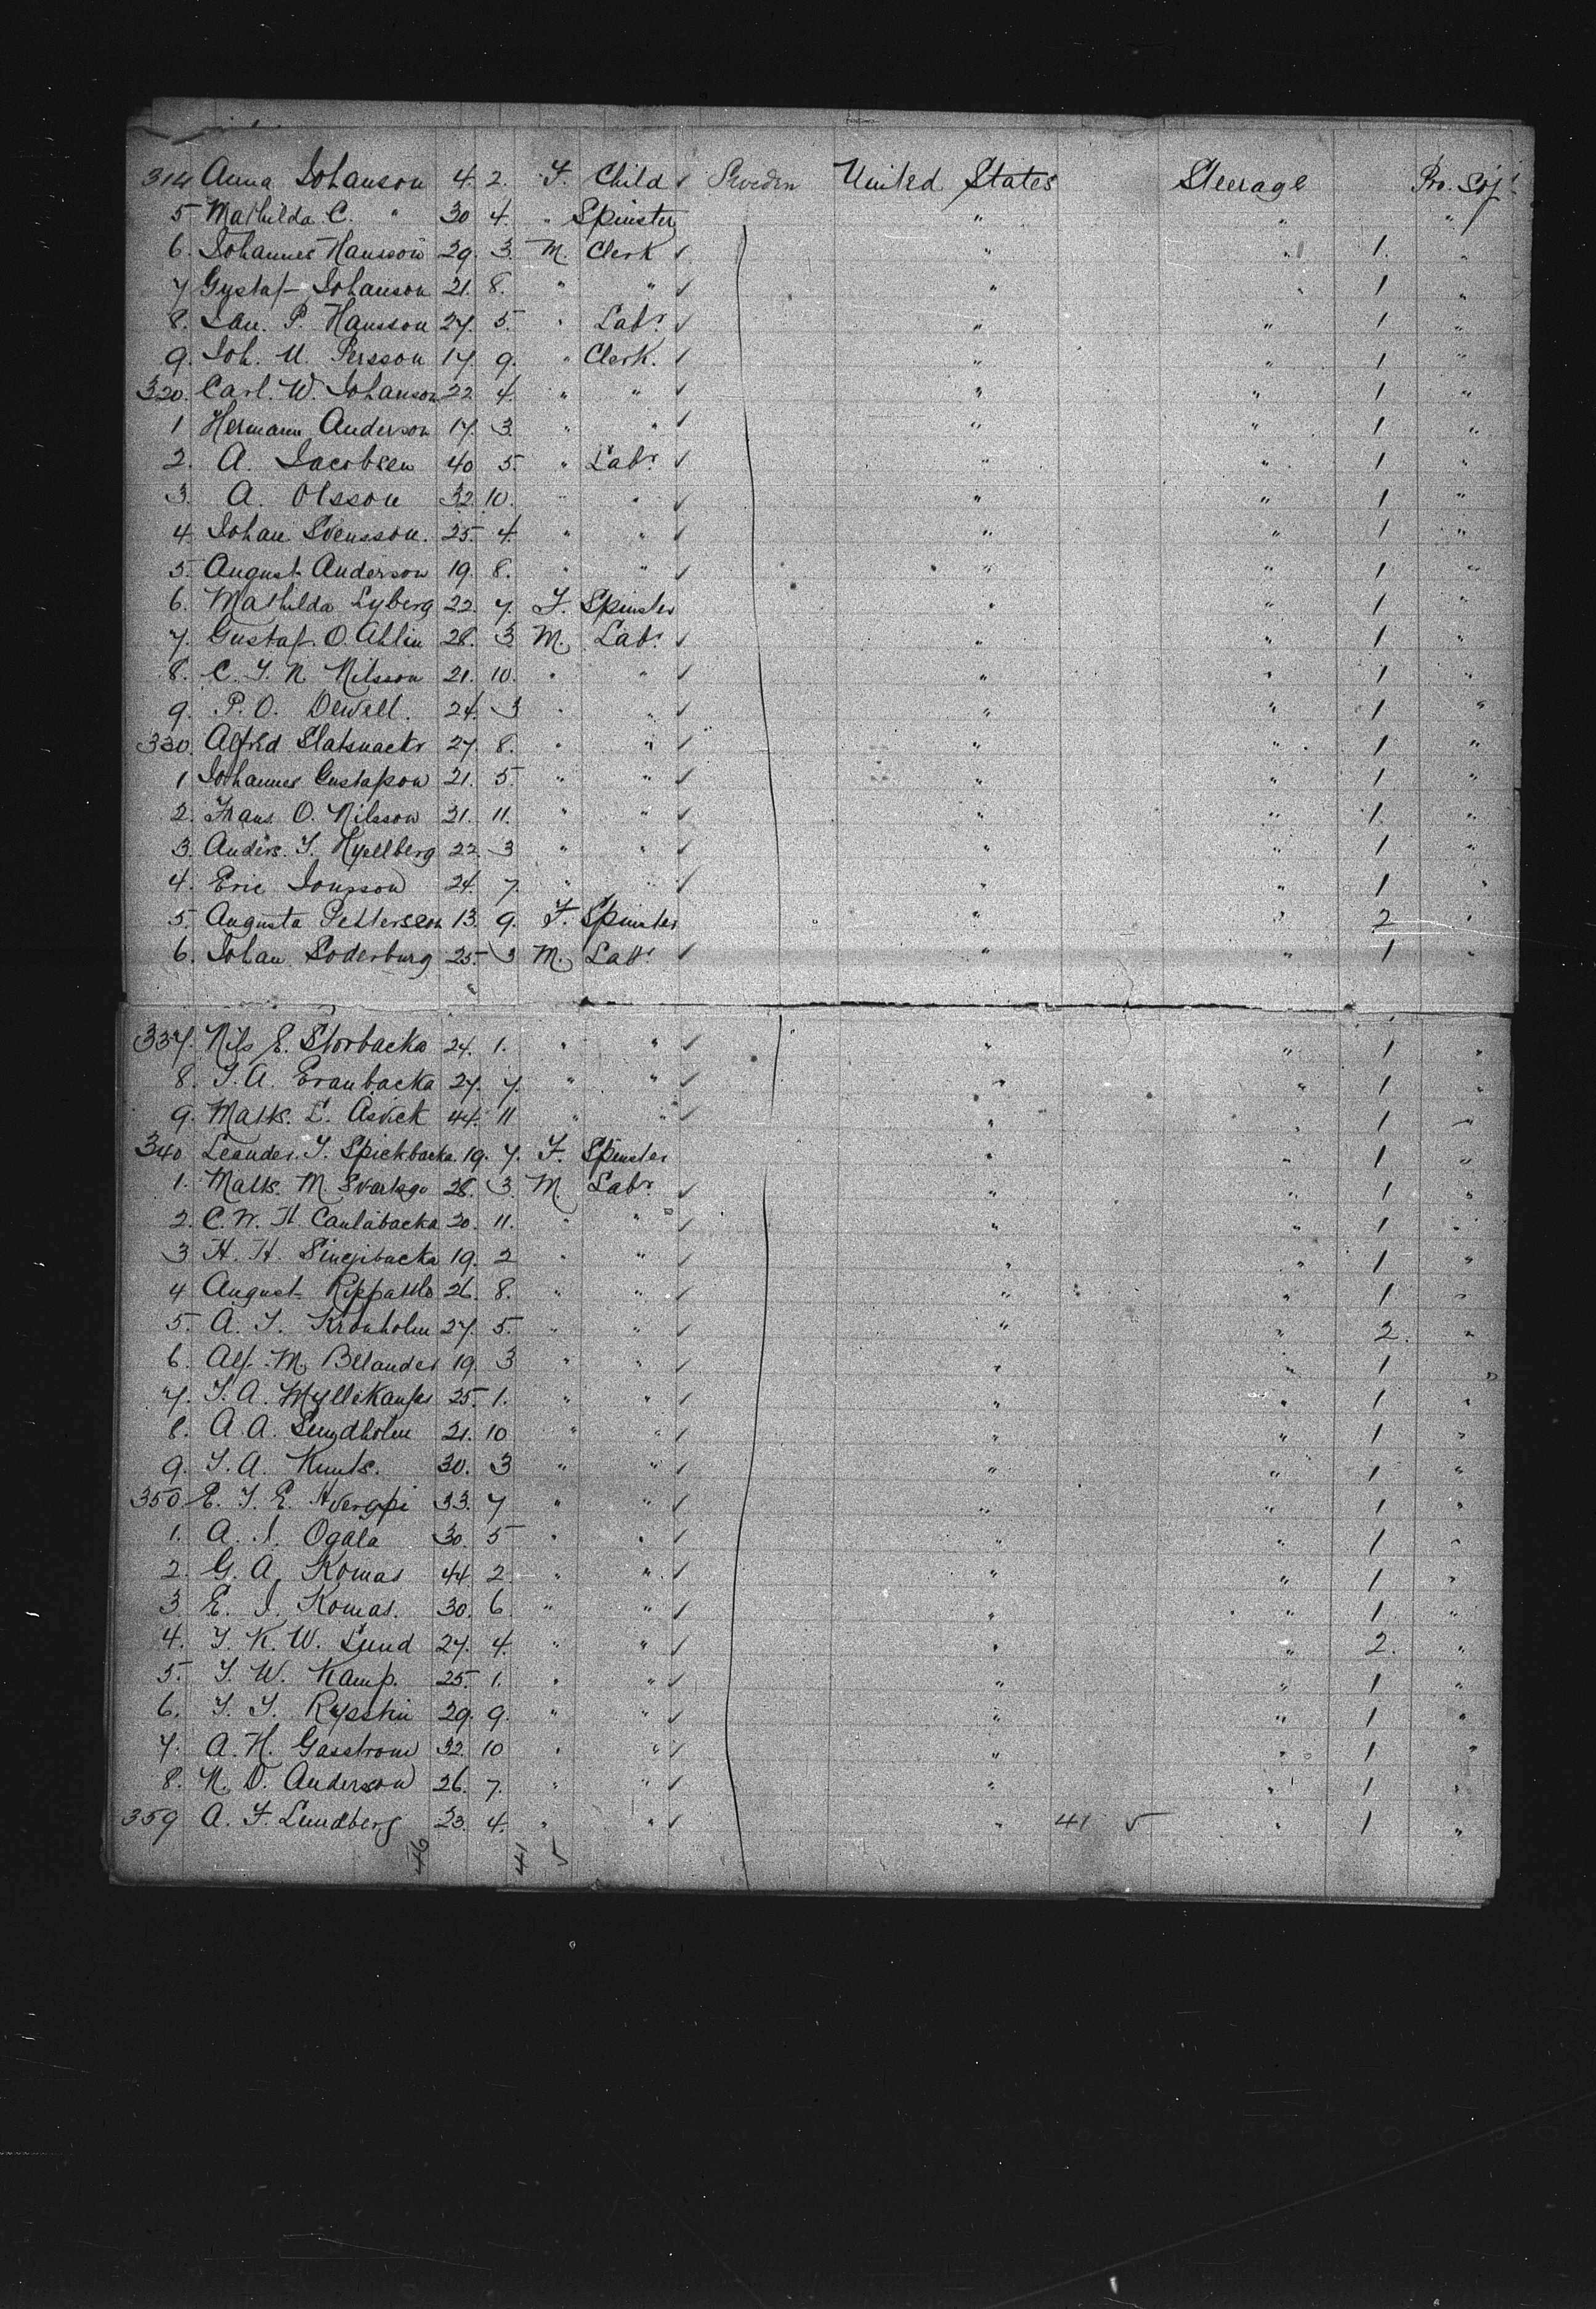 314 Anna Johanson 4. 2. F. Child ✓ Sweden United States Steerage Pro. Soj.
5 Mathilda C. " 30 4. " Spinster " " "
6. Johannes Hansson 29. 3. M. Clerk ✓ " " 1. "
7 Gustaf Johanson 21. 8. " " ✓ " " 1 "
8. Lau. P. Hansson 27. 5. " Labr. ✓ " " 1 "
9. Joh. U. Persson 17. 9. " Clerk. ✓ " " 1 "
320. Carl. W. Johanson 22 4. " " ✓ " " 1 "
1 Hermann Anderson 17. 3. " " ✓ " " 1 "
2. A. Jacobsen 40 5. " Labr. ✓ " " 1 "
3. A. Olsson 32. 10. " " ✓ " " 1 "
4 Johan Svensson. 25. 4. " " ✓ " " 1 "
5. August Anderson 19. 8. " " ✓ " " 1 "
6. Mathilda Lyberg 22. 7. F. Spinster " " 1 "
7. Gustaf. O. Ahlin 28. 3 M. Labr. ✓ " " 1 "
8. C. J. N. Nilsson 21. 10. " " ✓ " " 1 "
9. P. O. Dewell. 24. 3 " " ✓ " " 1 "
330. Alfred Slatsnackr 27. 8. " " ✓ " " 1 "
1 Johannes Gustafson 21. 5. " " ✓ " " 1 "
2. Frans O. Nilsson 21. 11. " " ✓ " " 1. "
3. Anders. J. Hyellberg 22. 3 " " ✓ " " 1 "
4. Eric Jonsson 24. 7. " " ✓ " " 1 "
5. Augusta Pettersen 13. 9. F. Spinster " " 2 "
6. Johan Soderburg 25. 3 M. Labr. ✓ " " 1 "
337. Nils E. Storbacka 24. 1. " " ✓ " " 1 "
8. J. A. Eranbacka 27. 7. " " ✓ " " 1 "
9. Matts. L. Asvick 44. 11 " " ✓ " " 1 "
340 Leander. J. Spickbacka. 19. 7. F. Spinster " " 1 "
1. Matts. M. Svartsgo 28. 3. M. Labr. ✓ " " 1 "
2. C. W. H. Caulabacka 20. 11. " " ✓ " " 1 "
3 H. H. Singibacka 19. 2 " " ✓ " " 1 "
4 August Rippatlo 26. 8. " " ✓ " " 1 "
5. A. J. Kronholm 27. 5. " " ✓ " " 2. "
6. Alf. M. Bllander 19. 3 " " ✓ " " 1 "
7. J. A. Myllskangas 25. 1. " " ✓ " " 1 "
8. A. A. Lundholm 21. 10 " " ✓ " " 1 "
9. J. A. Knuts. 30. 3 " " ✓ " " 1 "
350. E. J. E. 33. 7 " " ✓ " " 1 "
1. A. J. Ogala 30. 5 " " ✓ " " 1 "
2. G. A. Komas 44. 2. " " ✓ " " 1 "
3. E. J. Komas. 30. 6. " " ✓ " " 1 "
4. J. K. W. Lund 27. 4. " " ✓ " " 2. "
5. J. W. Kamp. 25. 1. " " ✓ " " 1 "
6. J. J. 29. 9. " " ✓ " " 1 "
7. A. H. Gasstrom 32. 10 " " ✓ " " 1 "
8. N. D. Anderson 26. 7. " " ✓ " " 1 "
359 A. F. Lundberg 23. 4. " " ✓ " 41 5 " 1 "
46 41 5